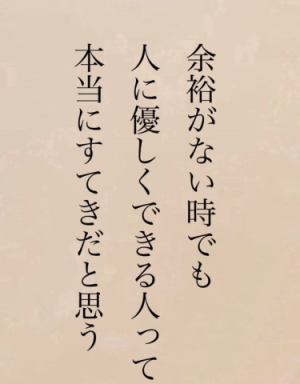 余裕がない時でも
人に優しくできる人って
本当にすてきだと思う